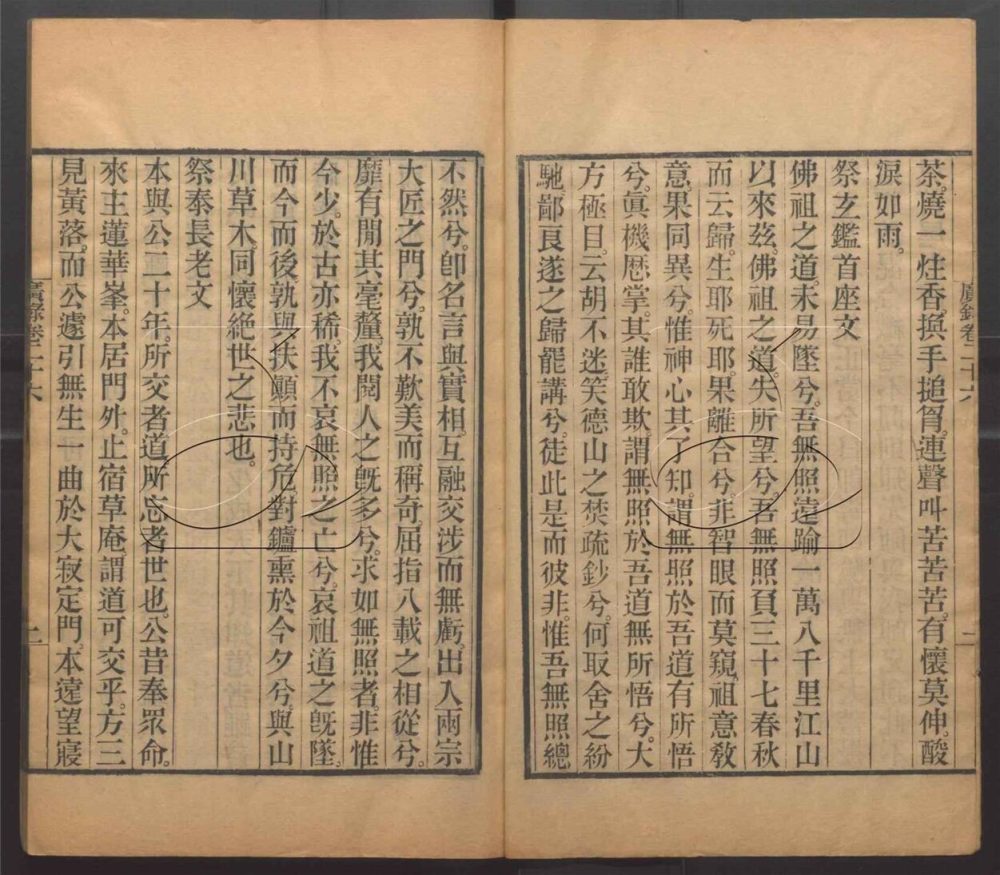 廣錄卷二十六
二
茶。燒一炷香。與手搥胷。連聲叫苦苦苦。有懷莫伸。酸
淚如雨。
祭玄鑑首座文
佛祖之道。未易墜兮。吾無照遠踰一萬八千里江山
以來茲。佛祖之道。失所望兮。吾無照負三十七春秋
而云歸。生耶死耶。果離合兮。非智眼而莫窺。祖意敎
意。果同異兮。惟神心其了知。謂無照於吾道有所悟
兮。眞機歷掌。其誰敢欺。謂無照於吾道無所悟兮。大
方極目。云胡不迷。笑德山之焚疏鈔兮。何取舍之紛
馳。鄙良遂之歸罷講兮。徒此是而彼非。惟吾無照總
不然兮。卽名言與實相。互融交涉而無虧。出入兩宗
大匠之門兮。孰不歎美而稱奇。屈指八載之相從兮。
靡有閒其毫釐。我閱人之旣多兮。求如無照者。非惟
今少。於古亦稀。我不哀無照之亡兮。哀祖道之旣墜。
而今而後。孰與扶顚而持危。對鑪熏於今夕兮。與山
川草木。同懷絶世之悲也。
祭泰長老文
本與公二十年。所交者道。所忘者世也。公昔奉眾命。
來主蓮華峯。本居門外。止宿草庵。謂道可交乎。方三
見黃落。而公遽引無生一曲於大寂定門。本遠望寢
廣錄卷二十六
二